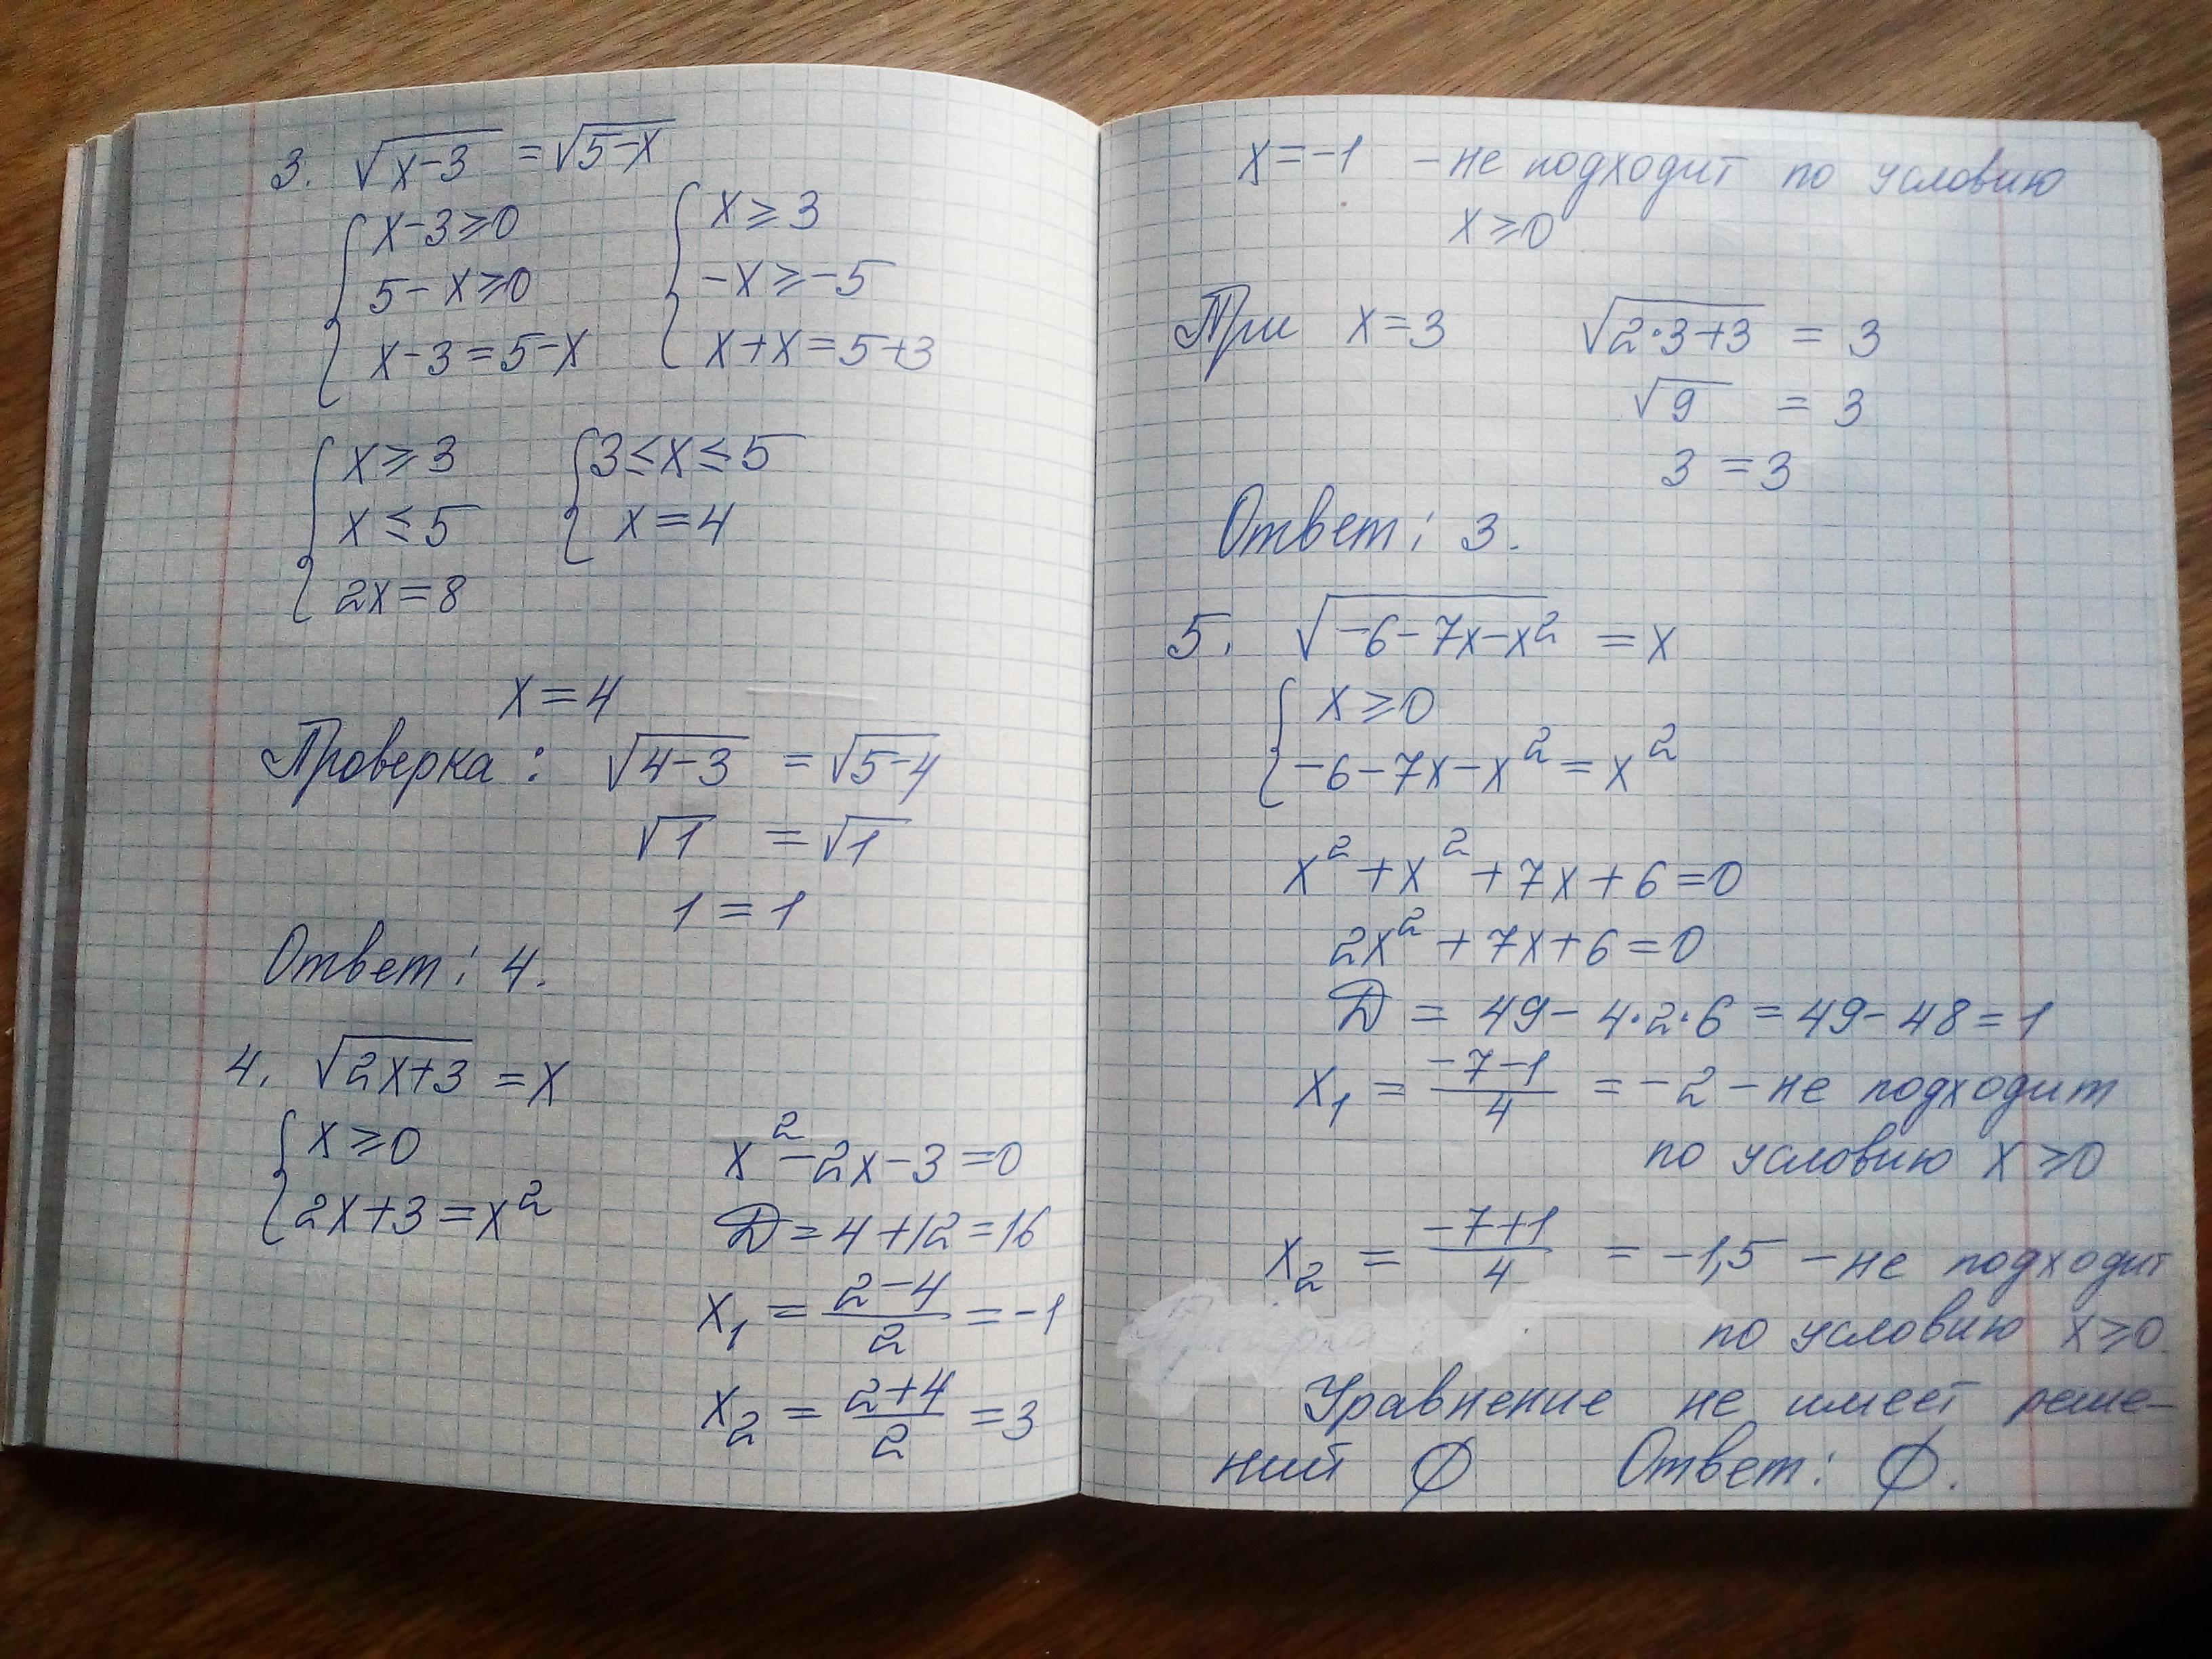 3. √(x-3) = √(5-x)
{ x-3⩾0 { x⩾3
5-x⩾0 -x⩾-5
x-3=5-x x+x=5+3
{ x⩾3 { 3≤x≤5
x≤5 x=4
2x=8
x=4
Проверка: √(4-3) = √(5-4)
√1 = √1
1=1
Ответ: 4.
4. √(2x+3) = x
{ x⩾0
2x+3=x²
x²-2x-3=0
D=4+12=16
x₁ = (2-4)/2 = -1
x₂ = (2+4)/2 = 3
x=-1 - не подходит по условию
x⩾0
При x=3 √(2·3+3) = 3
√9 = 3
3 = 3
Ответ: 3.
5. √(-6-7x-x²) = x
{ x⩾0
-6-7x-x²=x²
x²+x²+7x+6=0
2x²+7x+6=0
D = 49-4·2·6 = 49-48=1
x₁ = (-7-1)/4 = -2 - не подходит
по условию x⩾0
x₂ = (-7+1)/4 = -1,5 - не подходит
по условию x⩾0
Уравнение не имеет реше-
ний ∅ Ответ: ∅.